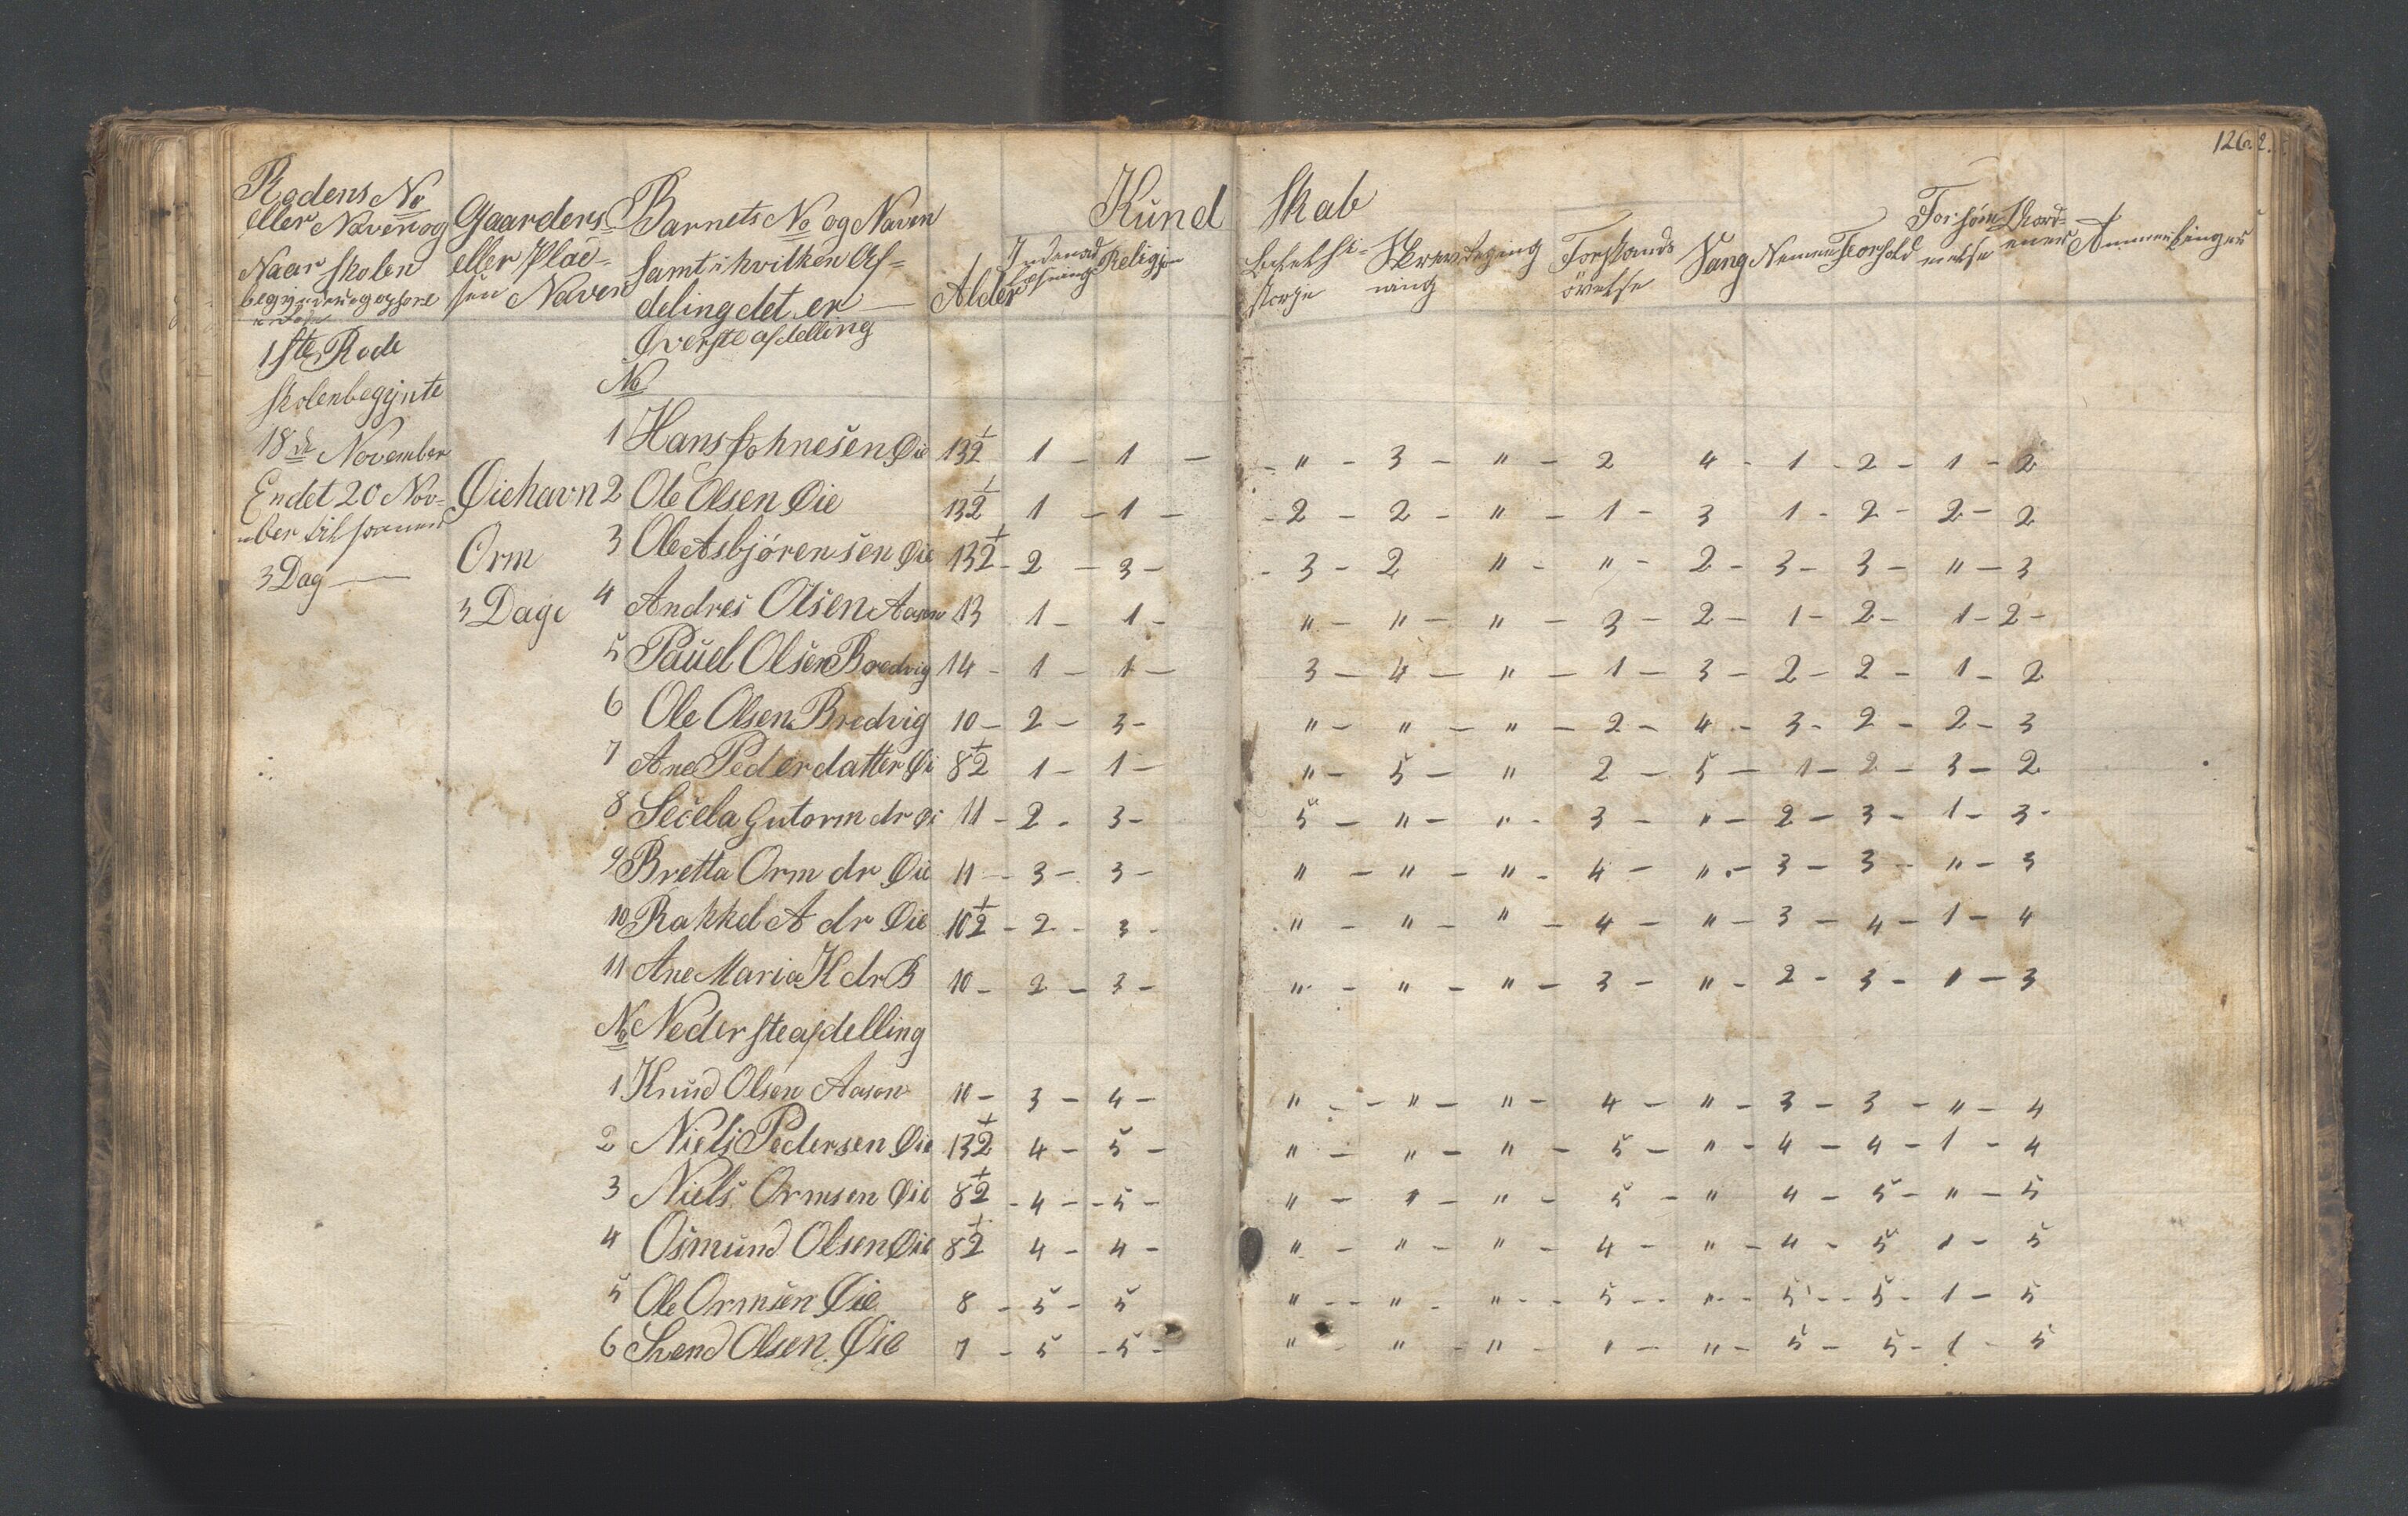 126.2.
Rodens No
eller Navn og
Naar Skolen
begynder og ophore
1ste Rode
Skolen begynte
18de November
Endet 20 Nov-
ber
3 Dag
Gaardens
eller Plad-
sen Naven
Øiehavn
Orm
3 Dage
Barnets No og Naven
samt i hvilken Af-
deling det er
Øverste afdelling
No
Alder
Kund Skab
Religjon
Skrev-
ning
Regning
Forstands
øvelse
Sang
Nemme
Forhold
Forsøm-
melse
Anmerkinger
1 Hans Johnesen Øie 13½ 1 - 1 - - " - 3 - " - 2 4 - 1 - 2 - 1 - 2
2 Ole Olsen Øie 13½ 1 - 1 - - 2 - 2 - " - 1 - 3 1 - 2 - 2 - 2
3 Ole Asbjörensen Øie 13½ - 2 - 3 - - 3 - 2 " - " - 2 - 3 - 3 - " - 3
4 Andres Olsen Aasen 13 1 - 1 - " - " - " - 3 - 2 - 1 - 2 - 1 - 2 -
5 Pauel Olsen Bredvig 14 - 1 - 1 - 3 - 4 - " - 1 - 3 - 2 - 2 - 1 - 2
6 Ole Olsen Bredvig 10 - 2 - 3 - " - " - " - 2 - 4 - 3 - 2 - 2 - 3
7 Ane Pederdatter Øi 8½ 1 - 1 - " - 5 - " 2 - 5 - 1 - 2 - 3 - 2
8 Secela Gutorm dr Øi 11 - 2 - 3 - 5 - " - " - 3 - " - 2 - 3 - 1 - 3 -
9 Bretta Orm dr Øie 11 - 3 - 3 - " - " - " - 4 - " - 3 - 3 - " - 3
10 Rakkel A dr Øie 10½ - 2 - 3 - " - " - " - 4 - " - 3 - 4 - 1 - 4
11 Ane Maria K dr B 10 - 2 - 3 - " - " - " - 3 - " - 2 - 3 - 1 - 3
No Nederste afdelling
1 Knud Olsen Aasen 10 - 3 - 4 - " - " - " - 4 - " - 3 - 3 - " - 4
2 Niels Pedersen Øie 13½ 4 - 5 - " - " - " - 5 - " - 4 - 4 - 1 - 4
3 Niels Ormsen Øie 8½ - 4 - - 5 - " - " - " - 5 - " 4 - 5 - " - 5
4 Osmund Olsen Øie 8½ 4 - 4 - " - " - " - 4 - " - 4 - 5 1 - 5
5 Ole Ormsen Øie 8 - 5 - 5 " - - " - " - - 5 - - " - - 5 - - 5 - 1 - 5
6 Svend Olsen Øie 7 - 5 - 5 - " - " - " - " - " - 5 - 5 - 1 - 5